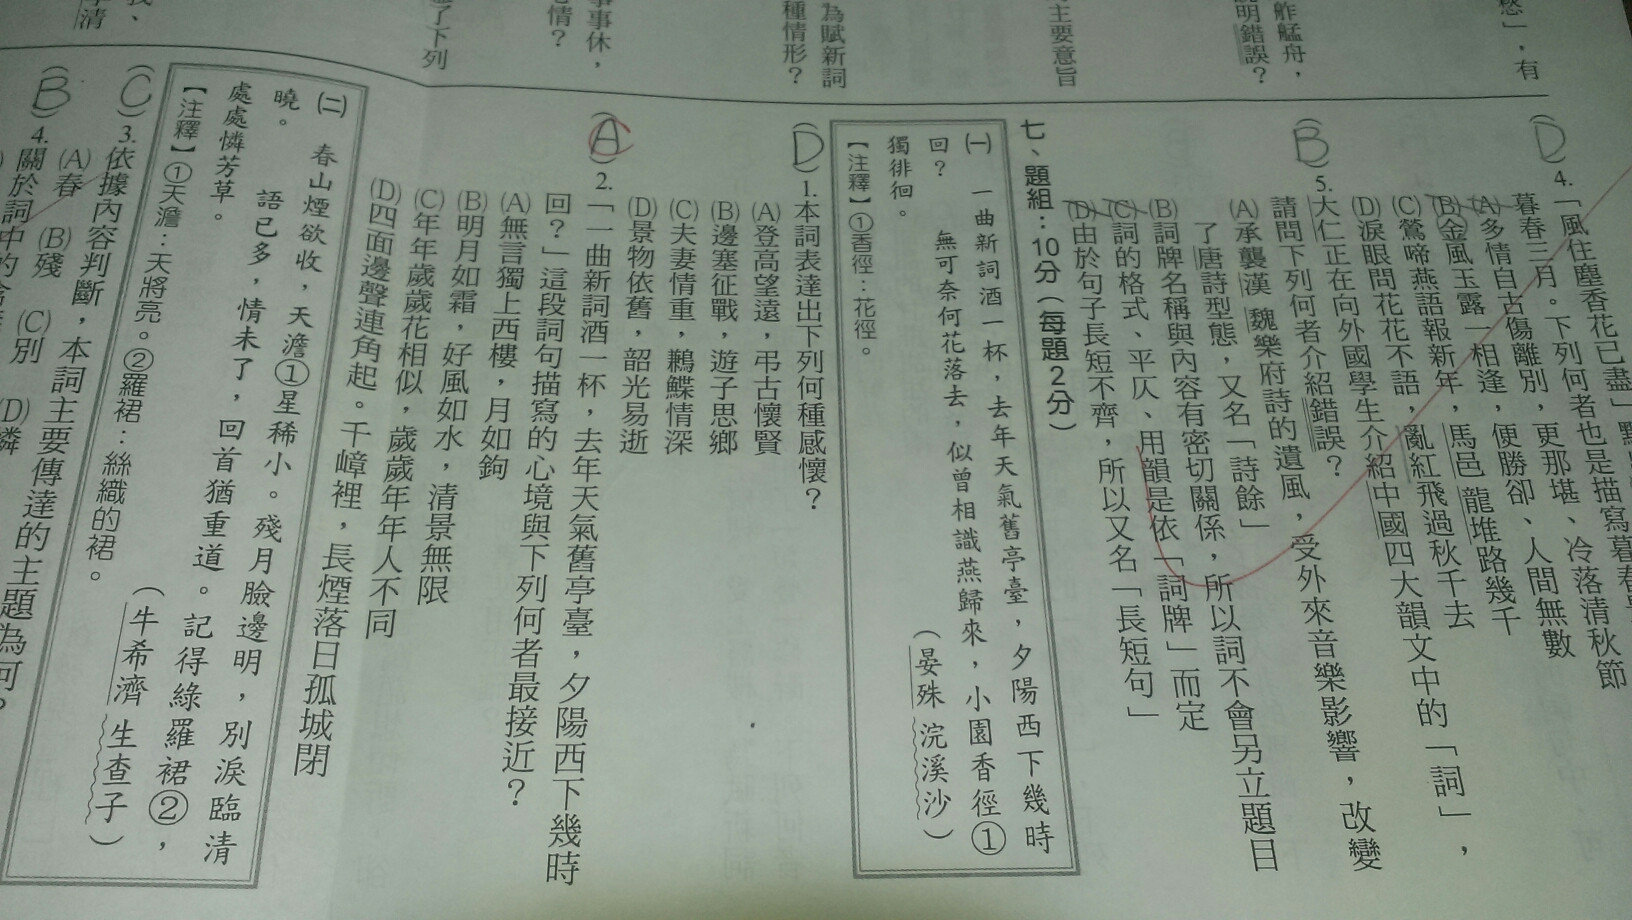 愁」，有
舴艋舟，
說明錯誤？
主要意旨
為賦新詞
種情形？
事休，
心情？
了下列
(D)4.「風住塵香花已盡」
暮春三月。下列何者也是描寫暮春
(A)多情自古傷離別，更那堪、冷落清秋節
(B)金風玉露一相逢，便勝卻、人間無數
(C)鶯啼燕語報新年，馬邑龍堆路幾千
(D)淚眼問花花不語，亂紅飛過秋千去
(B)5.大仁正在向外國學生介紹中國四大韻文中的「詞」，
請問下列何者介紹錯誤？
(A)承襲漢魏樂府詩的遺風，受外來音樂影響，改變
了唐詩型態，又名「詩餘」
(B)詞牌名稱與內容有密切關係，所以詞不會另立題目
(C)詞的格式、平仄、用韻是依「詞牌」而定
(D)由於句子長短不齊，所以又名「長短句」
七、題組：10分（每題2分）
㈠　一曲新詞酒一杯，去年天氣舊亭臺，夕陽西下幾時
回？　無可奈何花落去，似曾相識燕歸來，小園香徑①
獨徘徊。　（晏殊 浣溪沙）
【注釋】①香徑：花徑。
(D)1.本詞表達出下列何種感懷？
(A)登高望遠，弔古懷賢
(B)邊塞征戰，遊子思鄉
(C)夫妻情重，鶼鰈情深
(D)景物依舊，韶光易逝
(A)2.「一曲新詞酒一杯，去年天氣舊亭臺，夕陽西下幾時
回？」這段詞句描寫的心境與下列何者最接近？
(A)無言獨上西樓，月如鉤
(B)明月如霜，好風如水，清景無限
(C)年年歲歲花相似，歲歲年年人不同
(D)四面邊聲連角起。千嶂裡，長煙落日孤城閉
㈡　春山煙欲收，天澹①星稀小。殘月臉邊明，別淚臨清
曉。　語已多，情未了，回首猶重道。記得綠羅裙②，
處處憐芳草。　（牛希濟 生查子）
【注釋】①天澹：天將亮。②羅裙：絲織的裙。
(C)3.依據內容判斷，本詞主要傳達的主題為何？
(A)春　(B)殘　(C)別　(D)憐
(B)4.關於詞中的